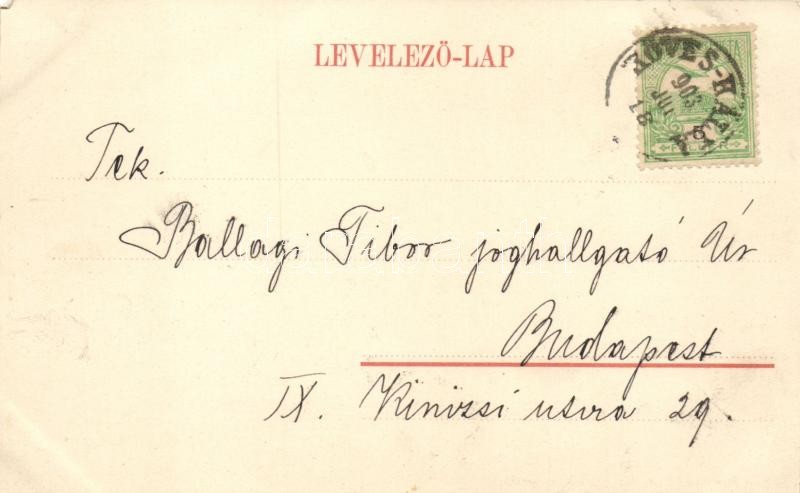 LEVELEZŐ-LAP
903 JUL 18
Tek.
Ballagi Tibor joghallgató Úr
Budapest
IX. Kinizsi utcza 29.